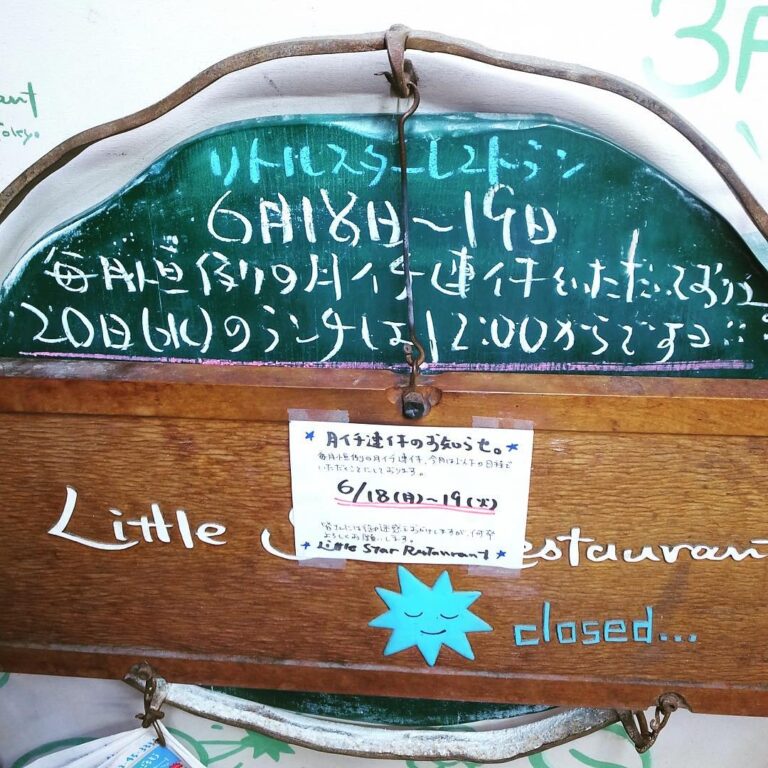 3F
リトルスターレストラン
6月18日〜19日
毎月恒例の月イチ連休をいただいており
20日(水)のランチは12:00からですヨ
★月イチ連休のお知らせ。★
毎月恒例の月イチ連休、今月は以下の日程で
いただくことにしております。
6/18(月)〜19(火)
皆さんにはご迷惑をおかけしますが、何卒
よろしくお願いします。
★Little Star Restaurant★
Little S estaurant
closed...